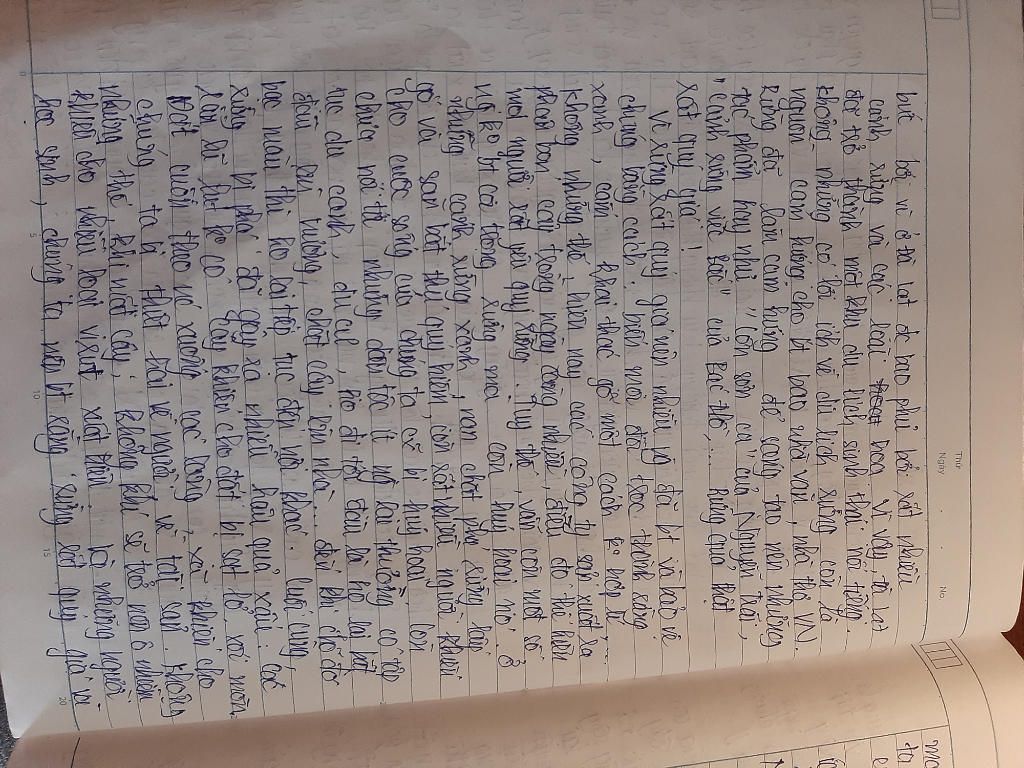 Thứ
Ngày
No.
biết bởi vì ở đà lạt đc bao phủ bởi rất nhiều
cánh rừng và các loài hoa. Vì vậy, đà lạt
đã trở thành một khu du lịch sinh thái nổi tiếng.
không những có lợi ích về du lịch rừng còn là
nguồn cảm hứng cho bt bao nhà văn, nhà thơ VN.
Rừng đã làm cảm hứng để sáng tạo nên những
tác phẩm hay như "Côn sơn ca" của Nguyễn Trãi,
"cảnh rừng việt Bắc" của Bác Hồ,... Rừng quả thật
rất quý giá!
Vì rừng rất quý giá nên nhiều ng đã bt và bảo vệ
chúng bằng cách: biến mọi đồi trọc thành rừng
xanh, cấm khai thác gỗ một cách k hợp lí...
không những thế hiện nay các công ty sản xuất ra
phân bón cây trồng ngày càng nhiều, điều đó thể hiện
mọi người rất yêu quý rừng. Tuy thế, vẫn còn một số
ng ko bt coi trọng rừng mà còn huỷ hoại nó. Ở
những cánh rừng xanh, nạn chặt phá rừng lấy
gỗ và săn bắt thú quý hiếm, còn rất nhiều người khiến
cho cuộc sống của chúng ta cỡ bị huỷ hoại. Còn
chưa nói tới những dân tộc ít ng họ thường có tập
tục du canh, du cư, họ đi tới đâu là họ lại đốt
đến đấy, chặt cây làm nhà... đến khi chỗ đó
bạc màu thì họ lại tiếp tục đến nơi khác. Cuối cùng,
rừng bị phá đã gây ra nhiều hậu quả xấu. các
lần lũ lụt ko có cây khiến cho đất bị sạt lở, xói mòn.
trôi cuốn theo nc xuống các làng, xã khiến cho
chúng ta bị thiệt hại về người và tài sản. Không
những thế khi mất cây, không khí sẽ trở nên ô nhiễm
khiến cho nhiều loại virut xuất hiện. Là những người
học sinh, chúng ta nên bt rằng rừng rất quý giá vì
0
5
10
15
20